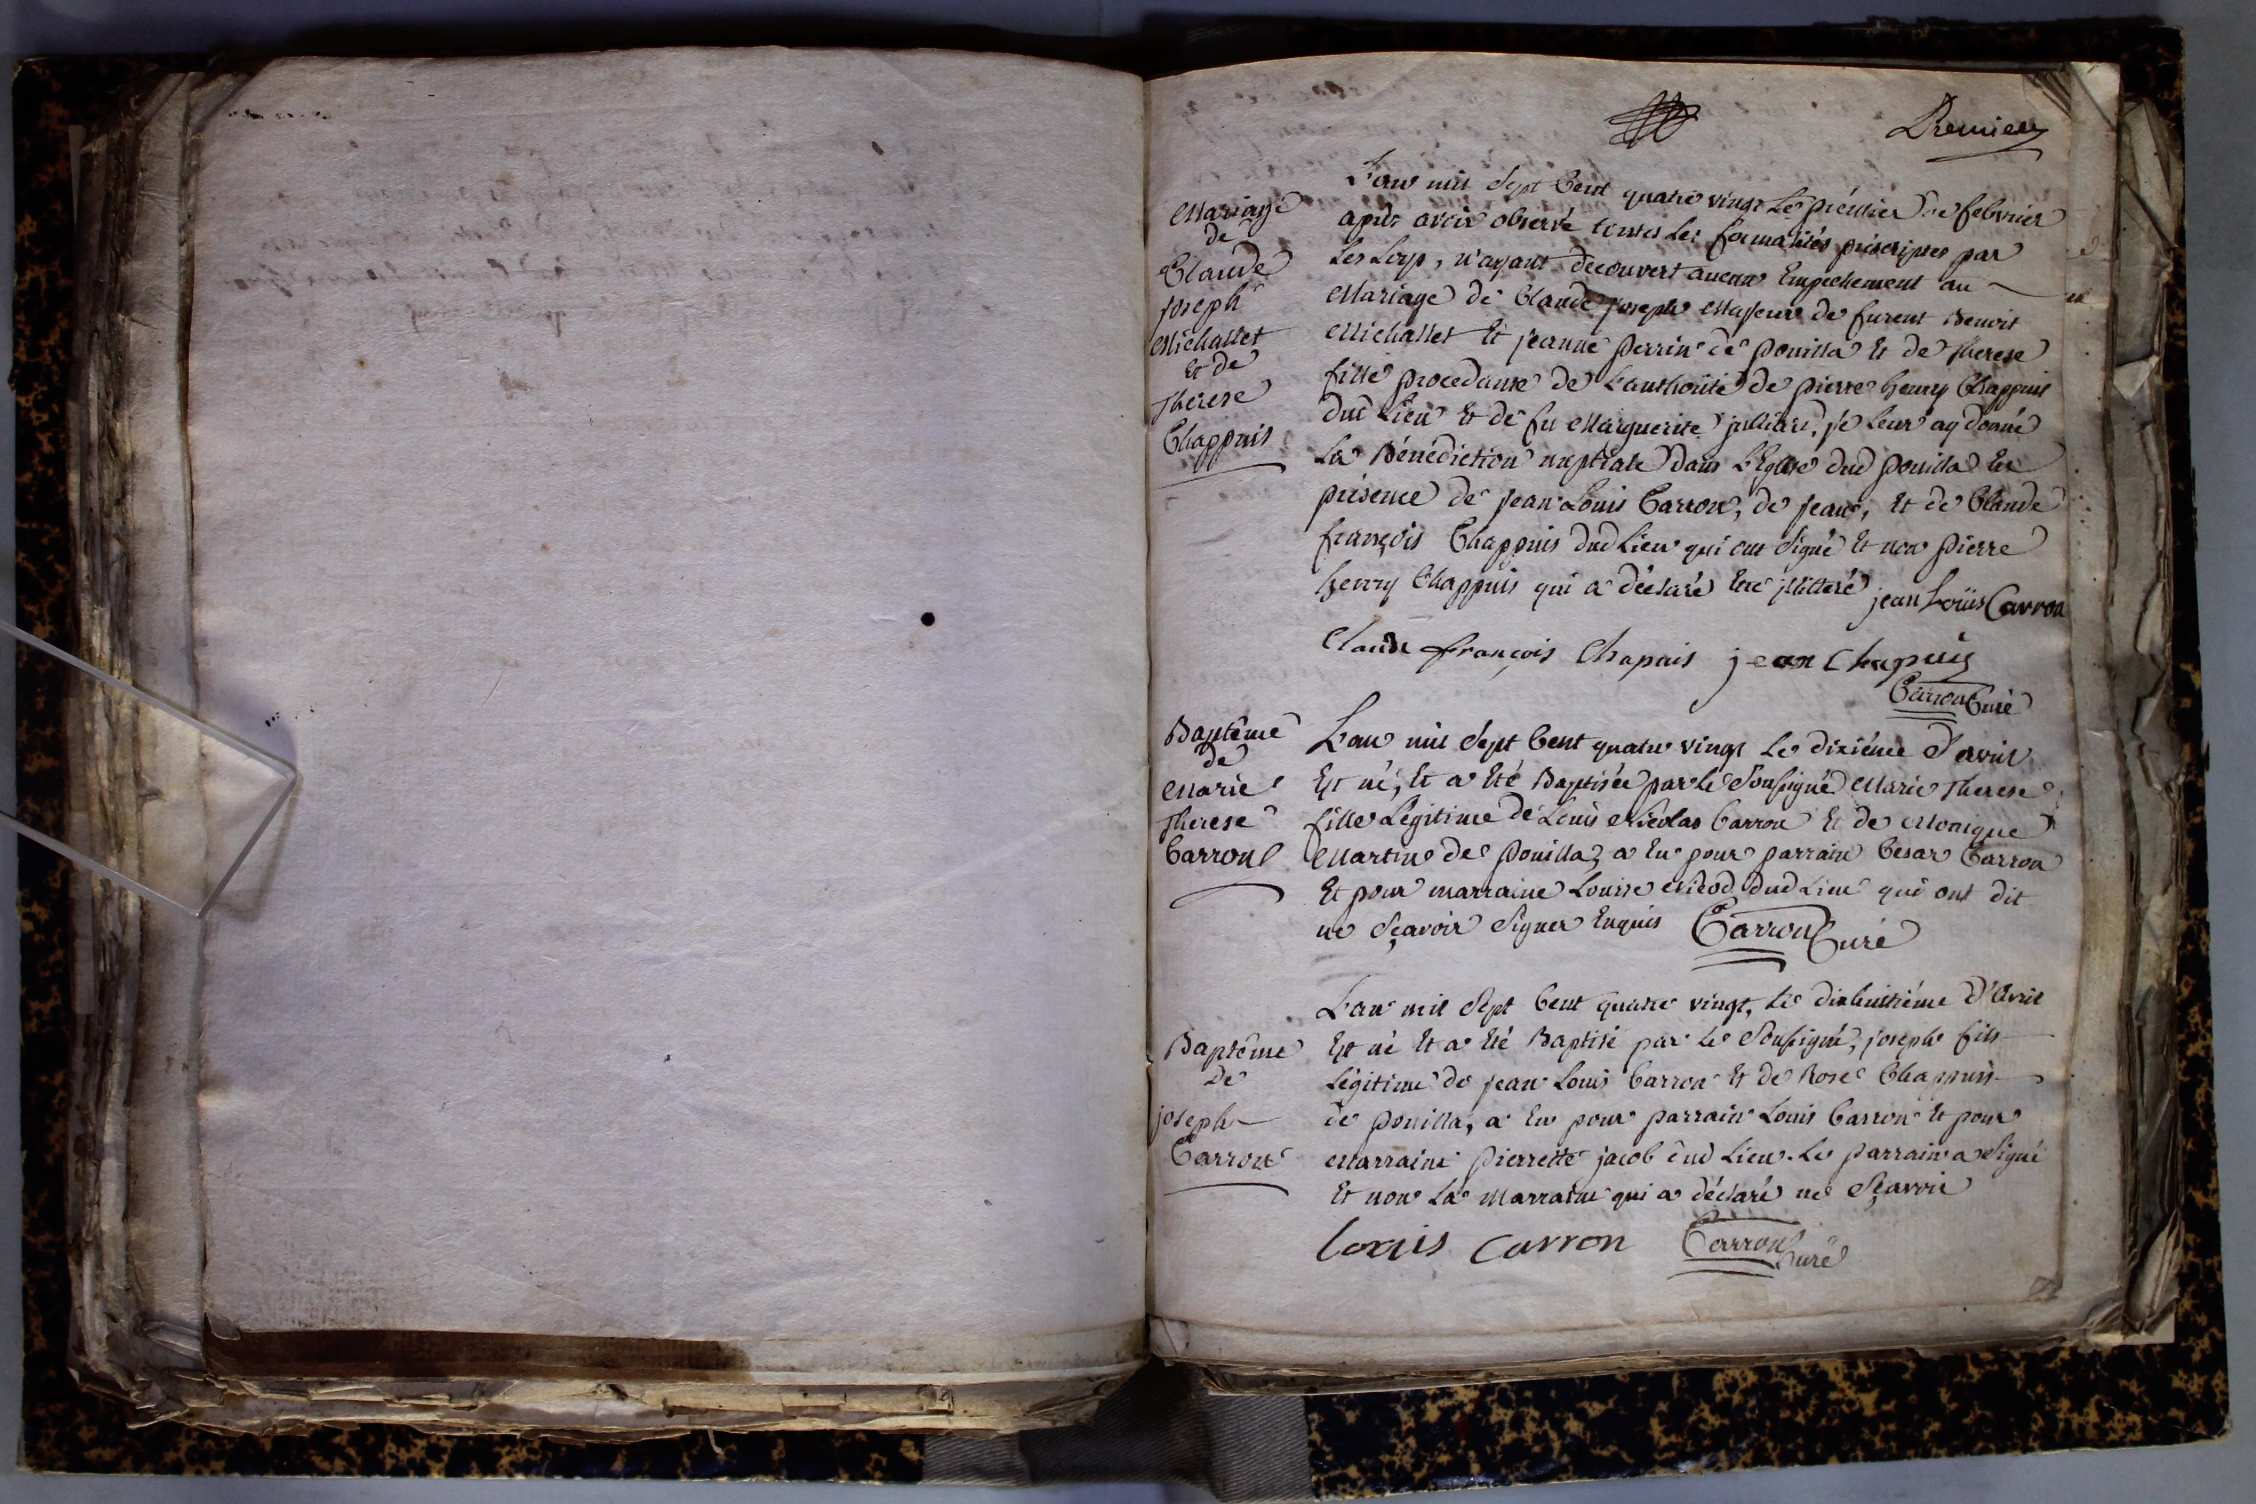 Premier
Mariage
de
Claude
joseph
Michallet
et de
Therese
Chappuis
L'an mil sept Cent quatre vingt Le premier de febvrier
après avoir observé toutes les formalités préscriptes par
Les Loys, n'ayant découvert aucun Empechement au
Mariage de Claude joseph Majeur de furent Benoit
Michallet Et jeanne perrin de pouilla Et de Therese
fille procedante de L'authorité de pierre henry Chappuis
dud Lieu Et de fu Marguerite julliard, je Leur ay donné
La Bénédiction nuptiale dans L'Eglise dud pouilla En
présence de jean Louis Carron, de jean, Et de Claude
françois Chappuis dud Lieu qui ont signé Et non pierre
henry Chappuis qui a déclaré Etre jllitteré jean Loüis Carron
Claude françois Chapuis jean Chapuis
Carron Curé
Baptême
de
Marie
Therese
Carron
L'an mil sept Cent quatre vingt Le dixiéme d'avril
Est né, Et a Eté Baptisée par le soussigné Marie Therese
fille Légitime de Louis Nicolas Carron Et de Monique
Martin de pouilla, a Eu pour parrain César Carron
Et pour marraine Louise Nicod dud Lieu qui ont dit
ne sçavoir signer Enquis Carron Curé
Baptême
De
joseph
Carron
L'an mil sept Cent quatre vingt, Le dixhuitiéme d'Avril
Est né Et a Eté Baptisé par le soussigné, joseph fils
Légitime de jean Louis Carron Et de Rose Chappuis
de pouilla, a Eu pour parrain Louis Carron Et pour
Marraine pierrette jacob dud Lieu. Le parrain a signé
Et non La Marraine qui a déclaré ne sçavoir
Louis Carron Carron Curé